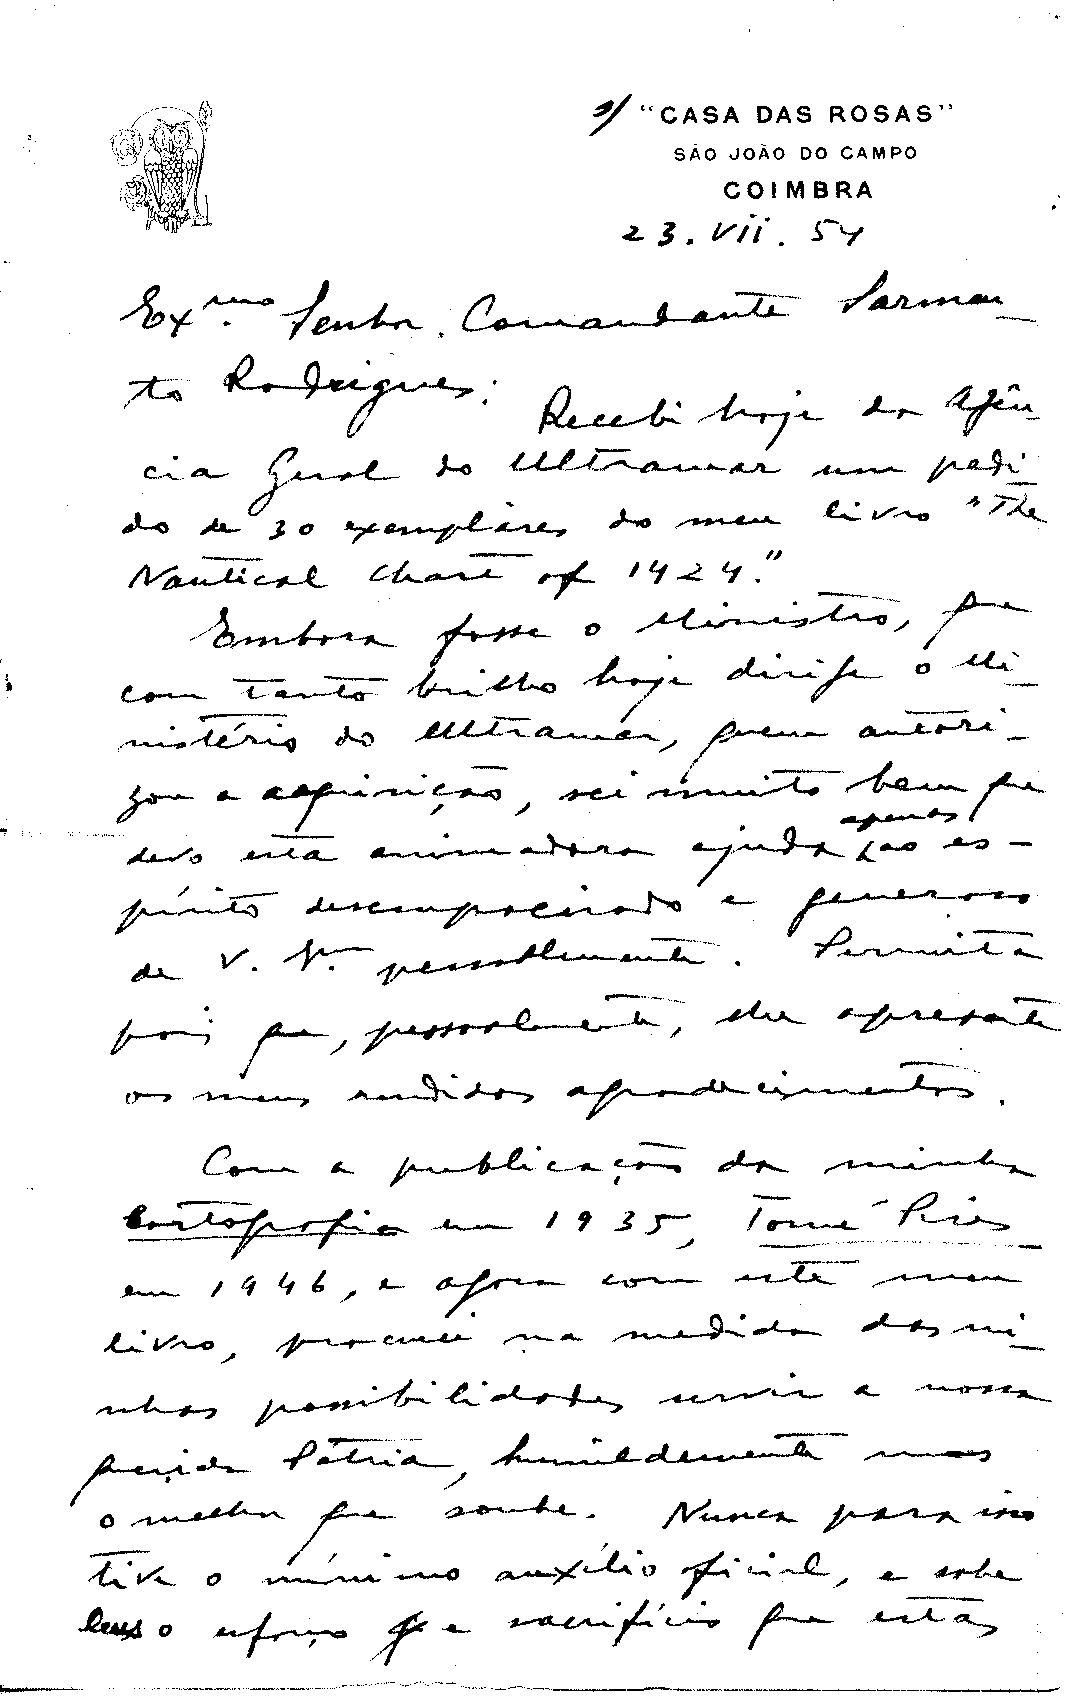 "CASA DAS ROSAS"
SÃO JOÃO DO CAMPO
COIMBRA
23.VII.54
Exmo. Senhor Comandante Sarmen-
to Rodrigues:
Recebi hoje da Agên-
cia Geral do Ultramar um pedi-
do de 30 exemplares do meu livro "The
Nautical Chart of 1424."
Embora fosse o Ministro, que
com tanto brilho hoje dirige o Mi-
nistério do Ultramar, quem autori-
zou a aquisição, sei muito bem que
devo esta animadora ajuda apenas ao es-
pírito desempoeirado e generoso
de V. Exa. pessoalmente. Permita
pois que, pessoalmente, lhe apresente
os meus rendidos agradecimentos.
Com a publicação da minha
Cartografia em 1935, Tomé Pires
em 1946, e agora com este meu
livro, procurei na medida das mi-
nhas possibilidades servir a nossa
querida Pátria, humildemente mas
o melhor que soube. Nunca para isso
tive o mínimo auxílio oficial, e sabe
Deus o esforço e sacrifício que estas